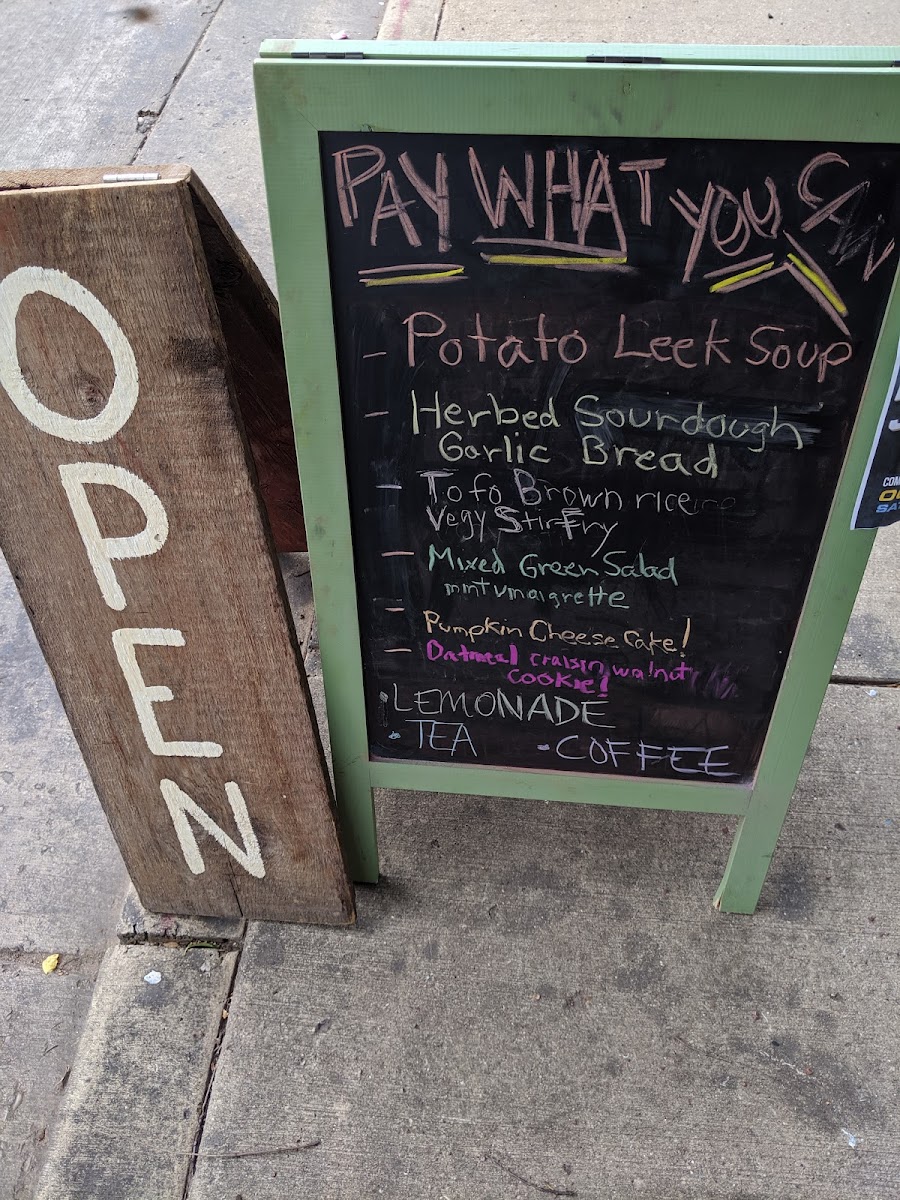 OPEN
PAY WHAT YOU CAN
- Potato Leek Soup
- Herbed Sourdough
Garlic Bread
- Tofo Brown rice
Vegy StirFry
- Mixed Green Salad
mint vinaigrette
- Pumpkin Cheese Cake!
- Oatmeal craisin walnut
cookie!
• LEMONADE
• TEA • COFFEE
COM